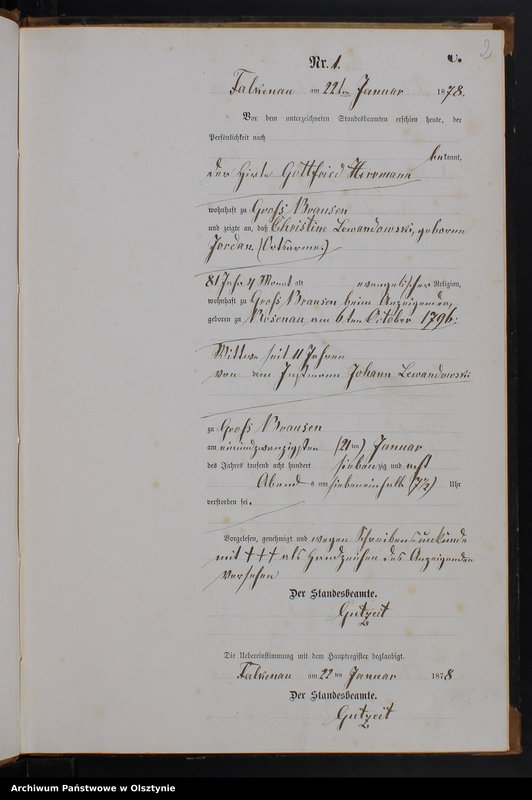 2
Nr. 1.
C.
Falkenau am 22ten Januar 1878.
Vor dem unterzeichneten Standesbeamten erschien heute, der
Persönlichkeit nach
bekannt,
der Hirte Gottfried Herrmann
wohnhaft zu Groß Brausen
und zeigte an, daß Christine Lewandowski, geborene
Jordan (Ortsarme.)
81 Jahr 4 Monat alt evangelischer Religion,
wohnhaft zu Groß Brausen beim Anzeigenden,
geboren zu Rosenau am 6ten October 1796;
Wittwe seit 11 Jahren
von dem Instmann Johann Lewandowski
zu Groß Brausen
am einundzwanzigsten (21ten) Januar
des Jahres tausend acht hundert siebenzig und acht
Abends um siebeneinhalb (7½) Uhr
verstorben sei.
Vorgelesen, genehmigt und wegen Schreibensunkunde
mit +++ als Handzeichen des Anzeigenden
versehen
Der Standesbeamte.
Gutzeit
Die Uebereinstimmung mit dem Hauptregister beglaubigt.
Falkenau am 22ten Januar 1878
Der Standesbeamte.
Gutzeit
Archiwum Państwowe w Olsztynie